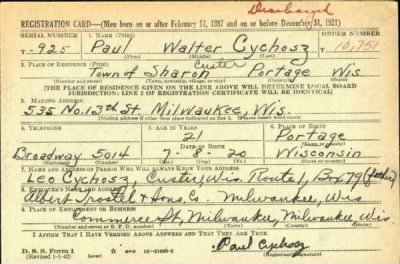 Discharged
REGISTRATION CARD—(Men born on or after February 17, 1897 and on or before December 31, 1921)
SERIAL NUMBER 1. NAME (Print) ORDER NUMBER
T-925 Paul Walter Cychosz 10,751
(First) (Middle) (Last)
2. PLACE OF RESIDENCE (Print) Custer
Town of Sharon Portage Wis.
(Number and street) (Town, township, village, or city) (County) (State)
[THE PLACE OF RESIDENCE GIVEN ON THE LINE ABOVE WILL DETERMINE LOCAL BOARD
JURISDICTION; LINE 2 OF REGISTRATION CERTIFICATE WILL BE IDENTICAL]
3. MAILING ADDRESS
535 No. 13th St. Milwaukee, Wis.
[Mailing address if other than place indicated on line 2. If same insert word same]
4. TELEPHONE 5. AGE IN YEARS 6. PLACE OF BIRTH
21 Portage
DATE OF BIRTH (Town or county)
Broadway 5014 7-8-20 Wisconsin
(Exchange) (Number) (Mo.) (Day) (Yr.) (State or country)
7. NAME AND ADDRESS OF PERSON WHO WILL ALWAYS KNOW YOUR ADDRESS
Leo Cychosz, Custer, Wis. Route 1, Box 79
8. EMPLOYER'S NAME AND ADDRESS
Albert Trostel & Sons, Co. Milwaukee, Wis
9. PLACE OF EMPLOYMENT OR BUSINESS
Commerce St, Milwaukee, Milwaukee, Wis.
(Number and street or R. F. D. number) (Town) (County) (State)
I AFFIRM THAT I HAVE VERIFIED ABOVE ANSWERS AND THAT THEY ARE TRUE.
D. S. S. Form 1
(Revised 1-1-42) (over)
Paul Cychosz